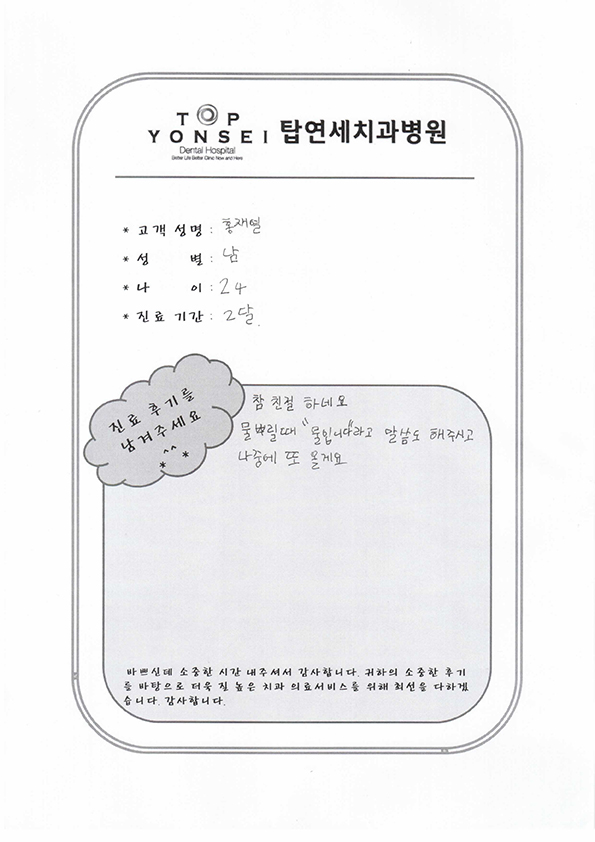 TOP
YONSEI 탑연세치과병원
Dental Hospital
Better Life Better Clinic Now and Here
* 고객 성명 : 홍재열
* 성 별 : 남
* 나 이 : 24
* 진료 기간 : 2달.
진료 후기를
남겨주세요
^^
* *
참 친절 하네요
물뿌릴때 "물입니다"라고 말씀도 해주시고
나중에 또 올게요
바쁘신데 소중한 시간 내주셔서 감사합니다. 귀하의 소중한 후기
를 바탕으로 더욱 질 높은 치과 의료서비스를 위해 최선을 다하겠
습니다. 감사합니다.